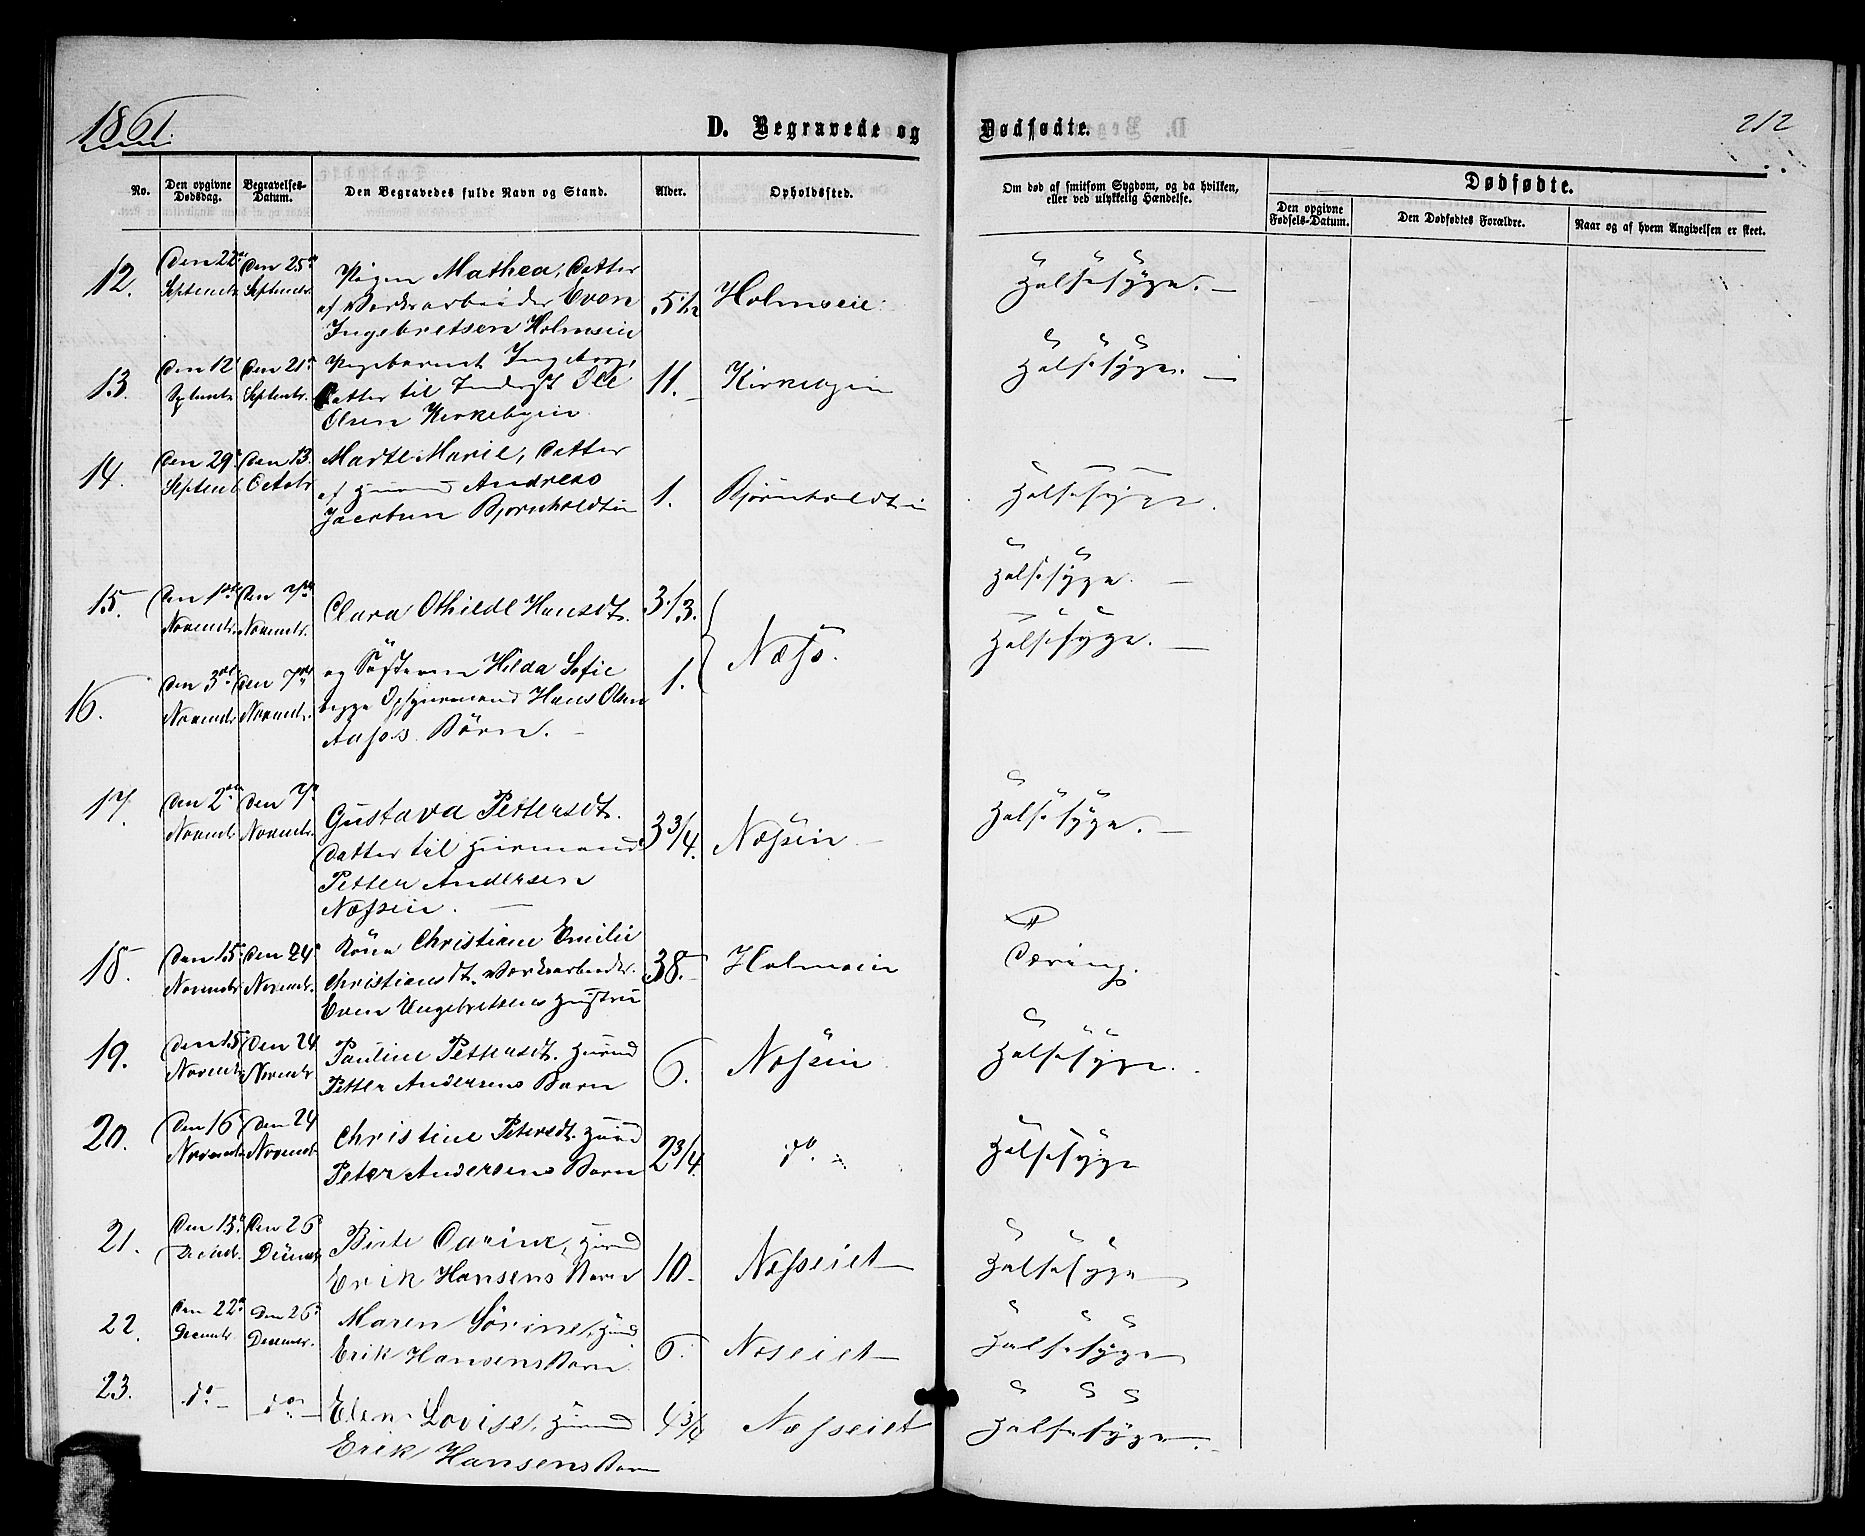 1861.
D. Begravede og Dødfødte.
212
No.
Den opgivne Dødsdag.
Begravelses-Datum.
Den Begravedes fulde Navn og Stand.
Alder.
Opholdssted.
Om død af smitsom Sygdom, og da hvilken, eller ved ulykkelig Hændelse.
Dødfødte.
Den opgivne Fødsels-Datum.
Den Dødfødtes Forældre.
Naar og af hvem Angivelsen er skeet.
12.
Den 22de
Septembr
Den 25de
Septembr
Pigen Mathea, Datter
af Værksarbeider Even
Ingebretsen Holmseie
5 1/12
Holmseie
Halssyge.
13.
Den 12
Septembr
Den 21de
Septembr.
Pigebarnet Ingeborg,
Datter til Inderst Ole
Olsen Kirkebyeie
11.
Kirkebyeie
Halssyge.
14.
Den 29de
Septemb.
Den 13.
Octobr
Marte Marie, Datter
af Huusmd Andreas
Jacobsen Bjørnholdtei
1.
Bjørnholdtei
Halsesyge.
15.
Den 1ste
Novembr.
Den 7de
Novembr.
Clara Othilde Hansdt.
3 1/3.
Næss.
Halsesyge.
16.
Den 3die
Novembr
Den 7de
Novembr.
og Søsteren Hilda Sofie
begge Opsynsmand Hans Olsen
Aasos Børn.
1.
Halsesyge.
17.
Den 2den
Novembr
Den 7de
Novembr.
Gustava Pettersdt.
Datter til Huusmand
Petter Andersen
Næsseie.
3 3/4.
Næsseie
Halsesyge.
18.
Den 15de
Novembr
Den 24de
Novembr.
Kone Christiane Emilie
Christiansdt. Værksarbeider.
Even Engebretsens Hustru
38.
Holmseie
Tæring.
19.
Den 15
Novembr
Den 24
Novembr
Pauline Pettersdt. Huusmd
Petter Andersens Barn
6.
Næsseie
Halsesyge.
20.
Den 16
Novembr
Den 24
Novembr
Christine Petersdt. Huusmd
Peter Andersens Barn
2 3/4.
do.
Halsesyge
21.
Den 13de
Decembr.
Den 26
Decembr
Birte Carine, Huusmd
Erik Hansens Barn
10.
Næsseiet
Halsesyge
22.
Den 22de
Decembr.
Den 26de
Decembr.
Maren Sørine, Huusmd
Erik Hansens Barn
6.
Næseiet
Halsesyge
23.
do
do
Elen Lovise, Huusmd
Erik Hansens Barn
4 3/4
Næsseiet
Halsesyge.